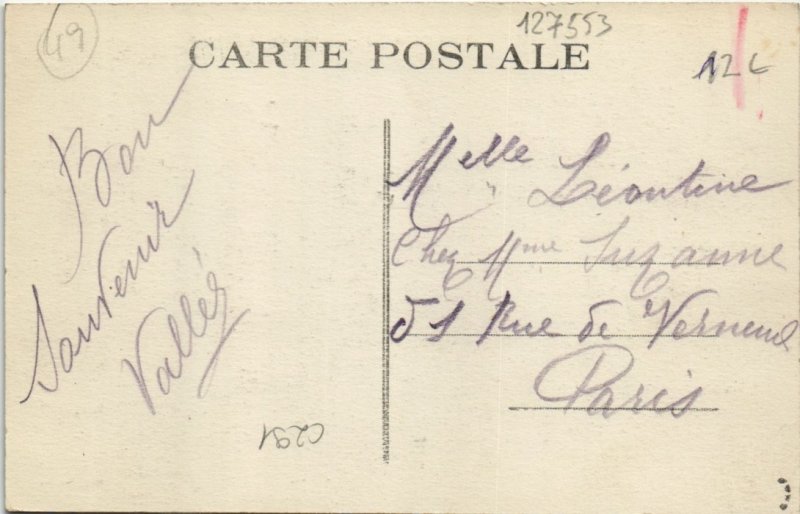 49
127553
CARTE POSTALE
12€
Bon
Souvenir
Vallée
Melle Léontine
Chez Mme Suzanne
51 Rue de Verneuil
Paris
C291